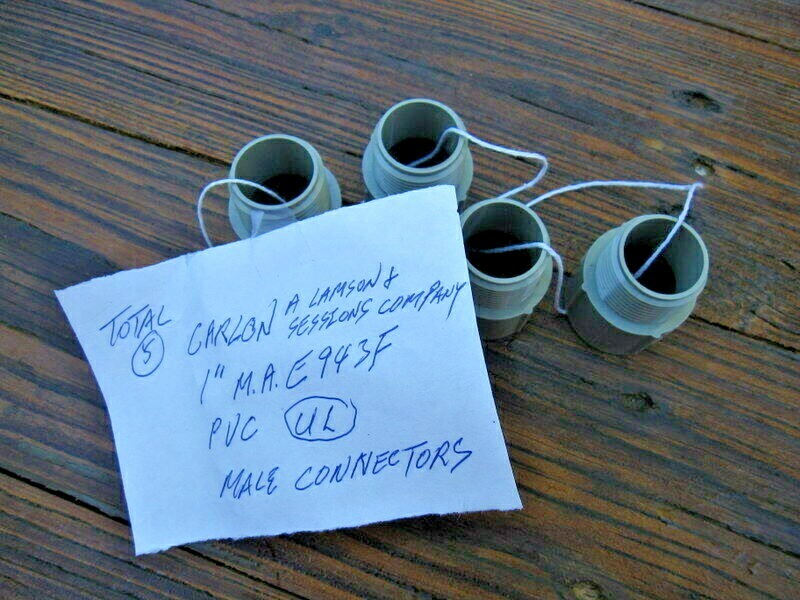 TOTAL
5
CARLON A LAMSON &
SESSIONS COMPANY
1" M.A. E943F
PVC UL
MALE CONNECTORS